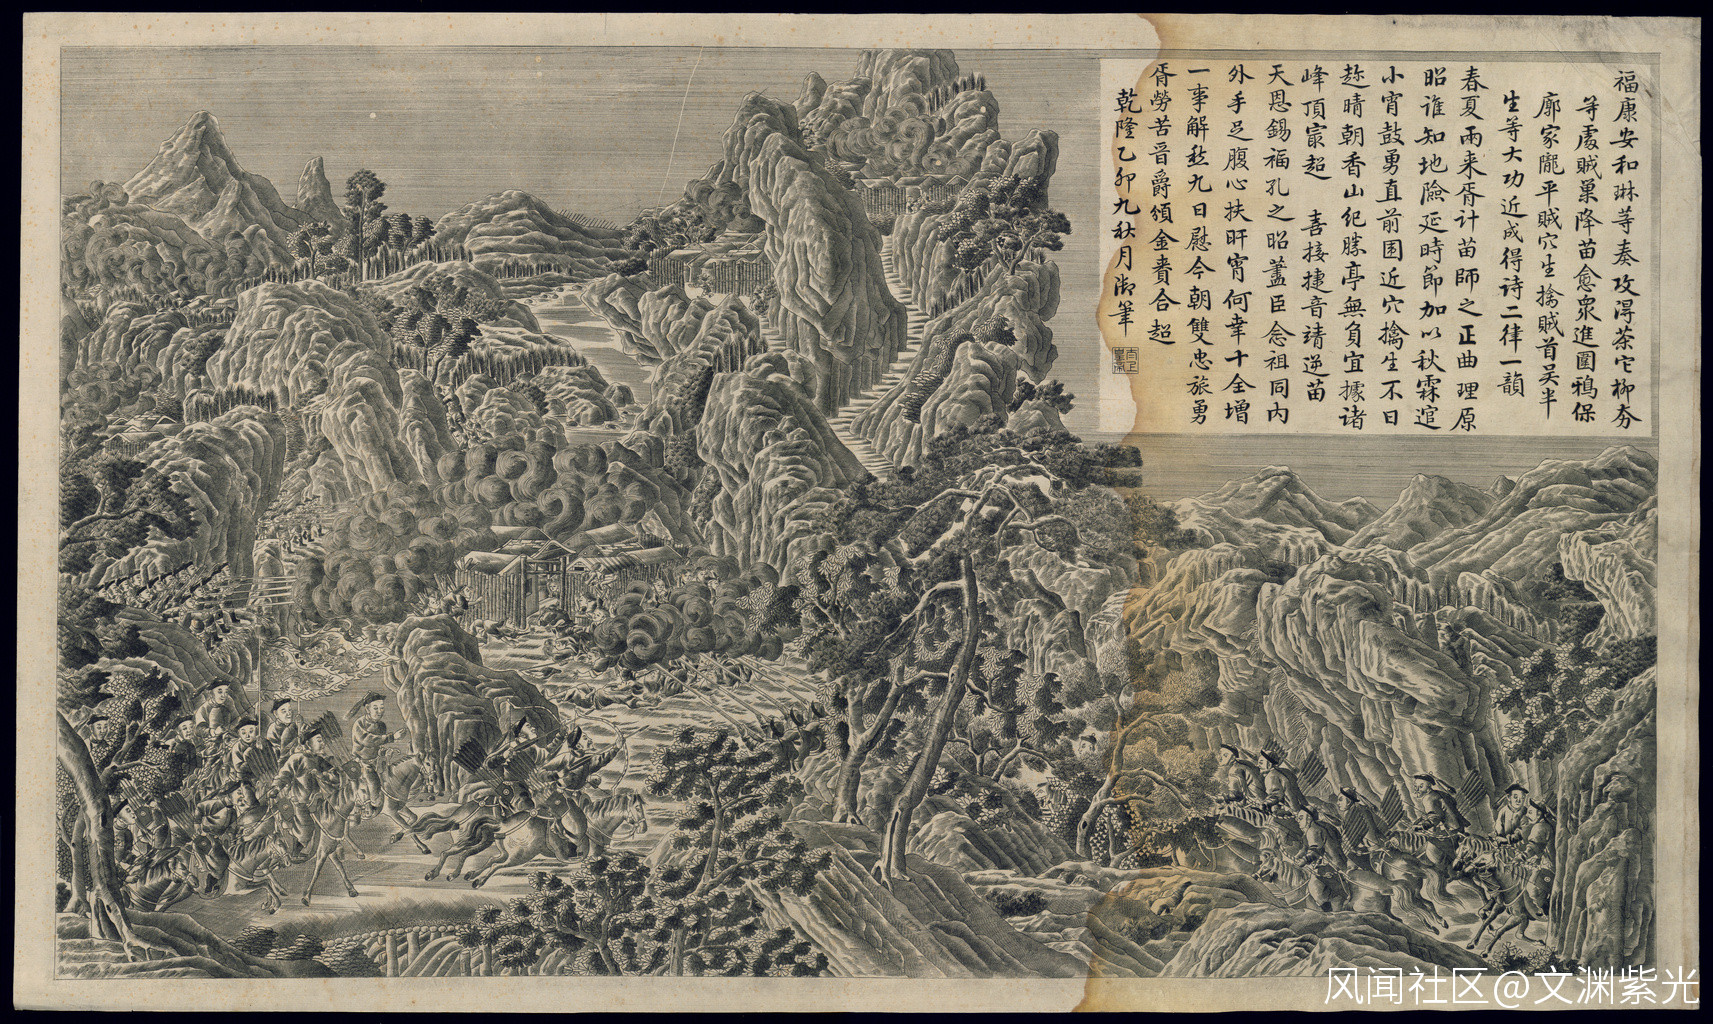 福康安和琳等奏攻得茶它柳夯
等處賊巢降苗愈眾進圍鴉保
廓家隴平賊穴生擒賊首吳半
生等大功近成得诗二律一韻
春夏雨来胥计苗師之正曲理原
昭谁知地險延時節加以秋霖逭
小宵鼓勇直前围近穴擒生不日
趂晴朝香山纪勝亭無負宜據诸
峰頂寂超 喜接捷音靖逆苗
天恩錫福孔之昭藎臣念祖同内
外手足腹心扶旰宵何幸十全增
一事解愁九日慰今朝雙忠旅勇
胥勞苦晉爵頒金賚合超
乾隆乙卯九秋月御筆
风闻社区@文渊紫光